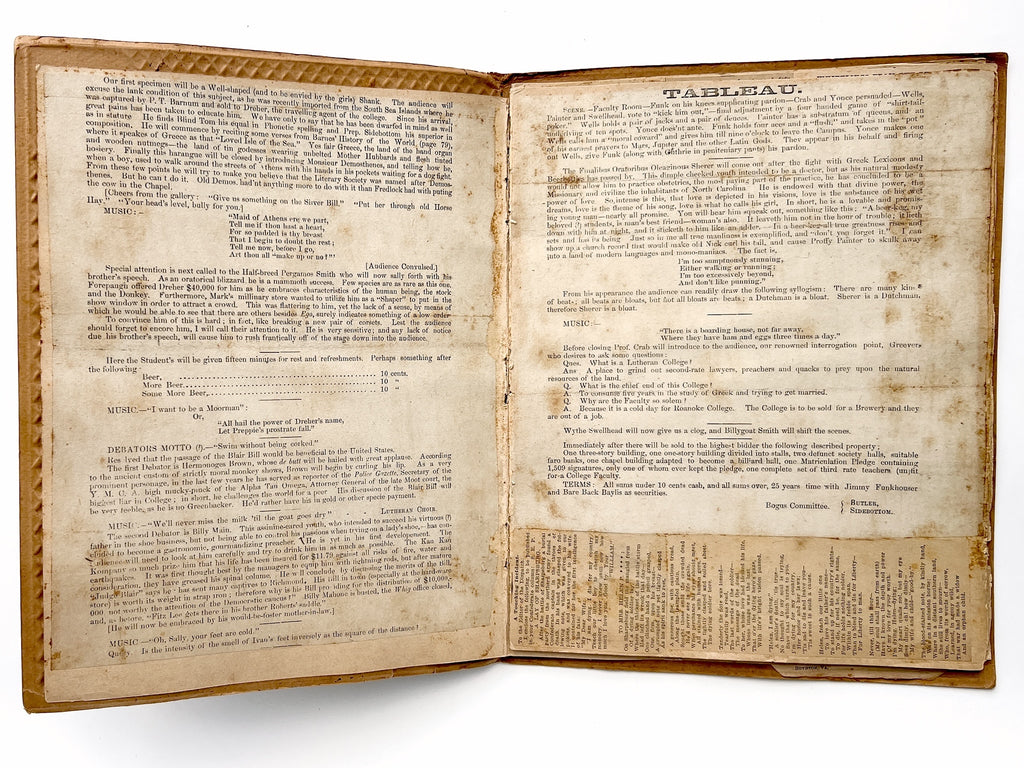 Our first specimen will be a Well-shaped (and to be envied by the girls) Shank. The audience will
excuse the lank condition of this subject, as he was recently imported from the South Sea Islands where he
was captured by P. T. Barnum and sold to Dreher, the travelling agent of the college. Since his arrival,
great pains has been taken to educate him. We have only to say that he has been dwarfed in mind as well
as in stature He finds Blind Tom his equal in Phonetic spelling and Prep. Sidebottom his superior in
composition. He will commence by reciting some verses from Barnes' History of the World, (page 79),
where it speaks of Greece as that "Loved Isle of the Sea." Yes fair Greece, the land of the hand organ
and wooden nutmegs—the land of tin godesses wearing unbelted Mother Hubbards and flesh tinted
hosiery. Finally his harangue will be closed by introducing Monsieur Demosthenes, and telling how he,
when a boy, used to walk around the streets of Athens with his hands in his pockets waiting for a dog fight.
From these few points he will try to make you believe that the Literary Society was named after Demos-
thenes. But he can't do it. Old Demos. had'nt anything more to do with it than Fredlock had with puting
the cow in the Chapel.
[Cheers from the gallery: "Give us something on the Sirver Bill." "Put her through old Horse
Hay." "Your head's level, bully for you.]
MUSIC:—
"Maid of Athens ere we part,
Tell me if thou hast a heart,
For so padded is thy breast
That I begin to doubt the rest;
Tell me now, before I go,
Art thou all "make up or no?"'
[Audience Convulsed.]
Special attention is next called to the Half-breed Pergamos Smith who will now sally forth with his
brother's speech. As an oratorical blizzard, he is a mammoth success. Few species are as rare as this one,
Forepaugh offered Dreher $40,000 for him as he embraces characteristics of the human being, the stork
and the Donkey. Furthermore, Mark's millinary store wanted to utilize him as a "Shaper" to put in the
show window in order to attract a crowd. This was flattering to him, yet the lack of a sense, by means of
which he would be able to see that there are others besides Ego, surely indicates something of a low order
To convince him of this is hard; in fect, like breaking a new pair of corsets. Lest the audience
should forget to encore him, I will call their attention to it. He is very sensitive; and any lack of notice
due his brother's speech, will cause him to rush frantically off of the stage down into the audience.
Here the Student's will be given fifteen minutes for rest and refreshments. Perhaps something after
the following
Beer, 10 cents.
More Beer, 10 "
Some More Beer, 10 "
MUSIC.—"I want to be a Moorman":
Or,
"All hail the power of Dreher's name,
Let Preppie's prostrate fall."
DEBATORS MOTTO (?).—"Swim without being corked."
Res lved that the passage of the Blair Bill would be beneficial to the United States.
The first Debator is Hermonoges Brown, whose de butt will be hailed with great applause. According
to the ancient custom of strictly moral monkey shows, Brown will begin by curling his lip. As a very
prominent personage, in the last few years he has served as reporter of the Police Gazette, Secretary of the
Y. M. C. A. high mucky-muck of the Alpha Tau Omega, Attorney General of the late Moot court, the
biggest liar in College; in short, he challenges the world for a peer His discussion of the Blair Bill will
be very feeble, as he is no Greenbacker. He'd rather have his in gold or other specie payment.
MUSIC.—"We'll never miss the milk 'til the goat goes dry" LUTHERAN CHOIR.
The second Debator is Billy Main. This assinine-eared youth, who intended to succeed his virtuous (?)
father in the shoe business, but not being able to control his passion when trying on a lady's shoe,—has con-
cluded to become a gastronomic, gourmandizing preacher. He is yet in his first development The
audience will need to look at him carefully and try to drink him in as much as possible. The Kan Kan
Kompany so much prize him that his life has been insured for $11.79 against all risks of fire, water and
earthquakes. It was first thought best by the managers to equip him with lightning rods, but after mature
consideration, they have greased his spinal column. He will conclude by discussing the merits of the Bill.
"Judge Blair" says he has sent many captives to Richmond. His (bill in town (especially at the hardware
store) is worth its weight in strap iron; therefore why is his Bill providing for the distribution of $10,000,
000 not worthy the attention of the Democratic caucus? Billy Mahone is busted, the Whig office closed
and, as before, "Fitz Lee gets there in his brother Roberts' saddle."
[He will now be embraced by his would-be-foster mother-in-law.]
MUSIC—"Oh, Sally, your feet are cold"
Query. Is the intensity of the smell of Ivan's feet inversely as the square of the distance?
TABLEAU.
SCENE.—Faculty Room—Funk on his knees supplicating pardon—Crab and Yonce persuaded—Wells,
Painter and Swellhead, vote to "kick him out,"—final adjustment by a four handed game of "shirt-tail-
poker." Wells holds a pair of jacks and a pair of deuces. Painter has a substratum of queens, and an
outlying of ten spots. Yonce does'nt ante. Funk holds four aces and a "flush," and takes in the "pot"
Wells calls him a "moral coward" and gives him till nine o'clock to leave the Campus. Yonce makes one
of his earnest prayers to Mars, Jupiter and the other Latin Gods. They appear in his behalf and firing
out Wells, give Funk (along with Guthrie in penitentiary pants) his pardon.
The Finalibus Oratoribus Obsceninus Sherer will come out after the fight with Greek Lexicons and
Beerbottles has passed by. This dimple checked youth intended to be a doctor, but as his natural modesty
would not allow him to practice obstetrics, the most paying part of the practice, he has concluded to be a
Missionary and civilize the inhabitants of North Carolina He is endowed with that divine power, the
power of love. So intense is this, that love is depicted in his visions, love is the substance of his wet
dreams, love is the theme of his song, love is what he calls his girl, In short, he is a lovable and promis-
ing young man—nearly all promise. You will hear him squeak out, something like this: "A beer-keg, my
beloved (?) students, is man's best friend—woman's also. It leaveth him not in the hour of trouble; it lieth
down with him at night, and it sticketh to him like an adder.—In a beer-keg all true greatness rises and
sets and has its being Just so in me all true manliness is exemplified, and "don't you forget it." I can
show up a church record that would make old Nick curl his tail, and cause Proffy Painter to skulk away
into a land of modern languages and mono-maniacs. The fact is,
I'm too sumptuously stunning,
Either walking or running;
I'm too excessively beyond,
And don't like punning."
From his appearance the audience can readily draw the following syllogism: There are many kinds
of beats; all beats are bloats, but not all bloats are beats; a Dutchman is a bloat. Sherer is a Dutchman,
therefore Sherer is a bloat.
MUSIC:—
"There is a boarding house, not far away,
Where they have ham and eggs three times a day."
Before closing Prof. Crab will introduce to the audience, our renowned interrogation point, Greevers
who desires to ask some questions:
Ques. What is a Lutheran College?
Ans A place to grind out second-rate lawyers, preachers and quacks to prey upon the natural
resources of the land.
Q. What is the chief end of this College?
A. To consume five years in the study of Greek and trying to get married.
Q. Why are the Faculty so solemn?
A. Because it is a cold day for Roanoke College. The College is to be sold for a Brewery and they
are out of a job.
Wythe Swellhead will now give us a clog, and Billygoat Smith will shift the scenes.
Immediately after there will be sold to the highest bidder the following described property;
One three-story building, one one-story building divided into stalls, two defunct society halls, suitable
faro banks, one chapel building adapted to become a billiard hall, one Matriculation Pledge containing
1,509 signatures, only one of whom ever kept the pledge, one complete set of third rate teachers (un)fit
for a College Faculty.
TERMS: All sums under 10 cents cash, and all sums over, 25 years time with Jimmy Funkhouser
and Bare Back Baylis as securities.
Bogus Committee. { BUTLER,
SIDEBOTTOM.